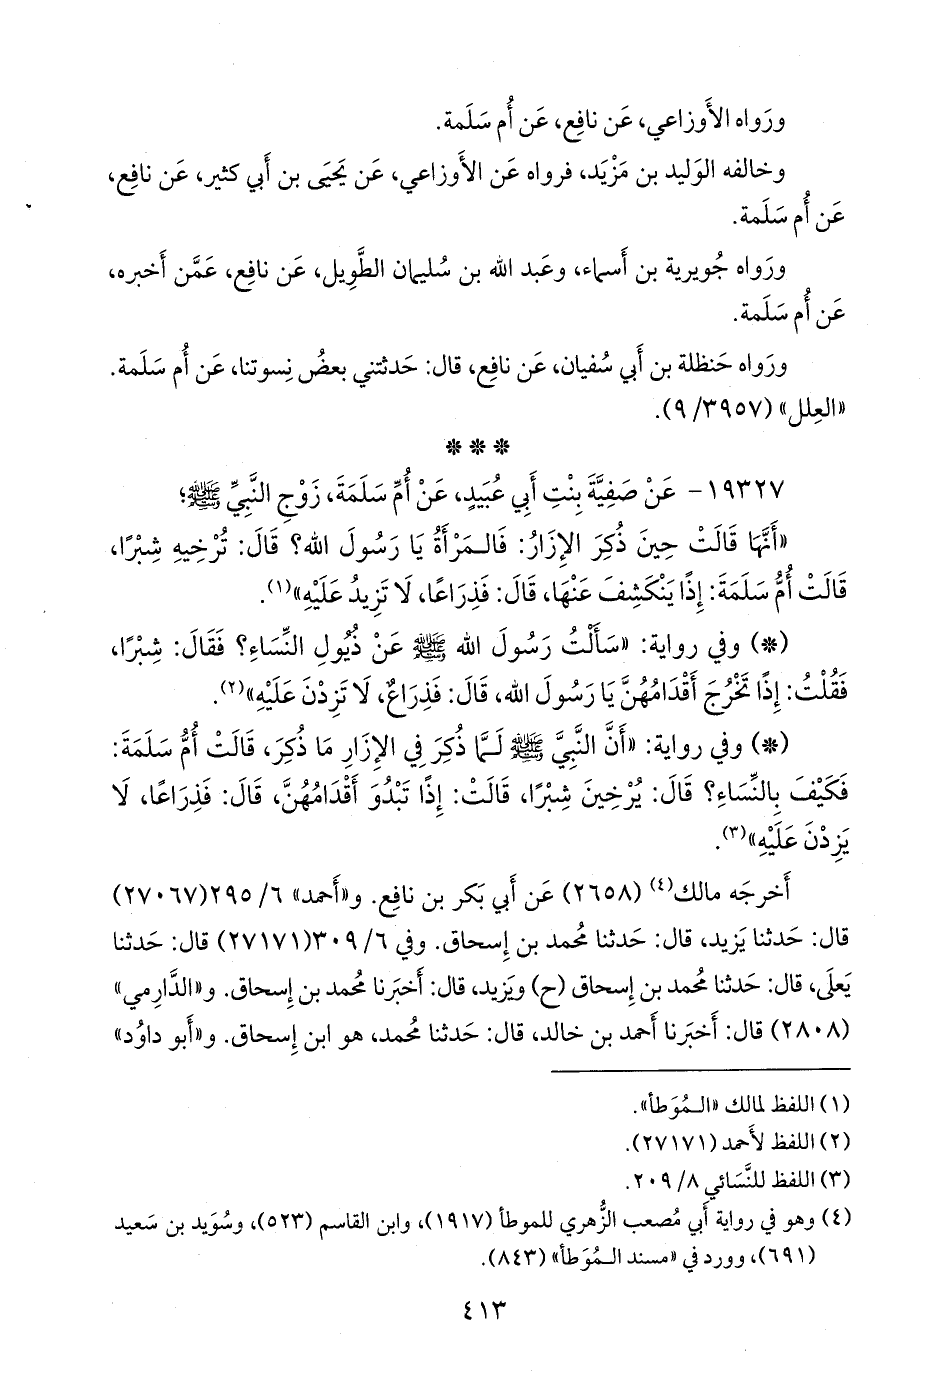 ورَواه الأَوزاعي، عَن نافِع، عَن أُم سَلَمة.
وخالفه الوَليد بن مَزْيَد، فرواه عَن الأَوزاعي، عَن يَحيَى بن أَبي كثير، عَن نافِع،
عَن أُم سَلَمة.
ورَواه جُويرية بن أَسماء، وعَبد الله بن سُليمان الطَّوِيل، عَن نافِع، عَمَّن أَخبره،
عَن أُم سَلَمة.
ورَواه حَنظلة بن أَبي سُفيان، عَن نافِع، قال: حَدثتني بعضُ نِسوتنا، عَن أُم سَلَمة.
«العِلل» (٣٩٥٧/ ٩).
* * *
١٩٣٢٧- عَنْ صَفِيَّةَ بِنْتِ أَبِي عُبَيدٍ، عَنْ أُمِّ سَلَمَةَ، زَوْجِ النَّبِيِّ ﷺ؛
«أَنَّهَا قَالَتْ حِينَ ذُكِرَ الإِزَارُ: فَالـمَرْأَةُ يَا رَسُولَ الله؟ قَالَ: تُرْخِيهِ شِبْرًا،
قَالَتْ أُمُّ سَلَمَةَ: إِذًا يَنْكَشِفَ عَنْهَا، قَالَ: فَذِرَاعًا، لَا تَزِيدُ عَلَيْهِ»(١).
(*) وفي رواية: «سَأَلْتُ رَسُولَ الله ﷺ عَنْ ذُيُولِ النِّسَاءِ؟ فَقَالَ: شِبْرًا،
فَقُلْتُ: إِذًا تَخْرُجَ أَقْدَامُهُنَّ يَا رَسُولَ الله، قَالَ: فَذِرَاعٌ، لَا تَزِدْنَ عَلَيْهِ»(٢).
(*) وفي رواية: «أَنَّ النَّبِيَّ ﷺ لَـمَّا ذُكِرَ فِي الإِزَارِ مَا ذُكِرَ، قَالَتْ أُمُّ سَلَمَةَ:
فَكَيْفَ بِالنِّسَاءِ؟ قَالَ: يُرْخِينَ شِبْرًا، قَالَتْ: إِذًا تَبْدُوَ أَقْدَامُهُنَّ، قَالَ: فَذِرَاعًا، لَا
يَزِدْنَ عَلَيْهِ»(٣).
أَخرجَه مالك(٤) (٢٦٥٨) عَن أَبي بَكر بن نافِع. و«أَحمد» ٦/ ٢٩٥(٢٧٠٦٧)
قال: حَدثنا يَزيد، قال: حَدثنا مُحمد بن إِسحاق. وفي ٦/ ٣٠٩(٢٧١٧١) قال: حَدثنا
يَعلَى، قال: حَدثنا مُحمد بن إِسحاق (ح) ويَزيد، قال: أَخبَرنا مُحمد بن إِسحاق. و«الدَّارِمي»
(٢٨٠٨) قال: أَخبَرنا أَحمد بن خالد، قال: حَدثنا مُحمد، هو ابن إِسحاق. و«أَبو داوُد»
(١) اللفظ لمالك «الـمُوَطأ».
(٢) اللفظ لأَحمد (٢٧١٧١).
(٣) اللفظ للنَّسَائي ٨/ ٢٠٩.
(٤) وهو في رواية أَبي مُصعب الزُّهري للموطأ (١٩١٧)، وابن القاسم (٥٢٣)، وسُوَيد بن سَعيد
(٦٩١)، وورد في «مسند الـمُوَطأ» (٨٤٣).
٤١٣